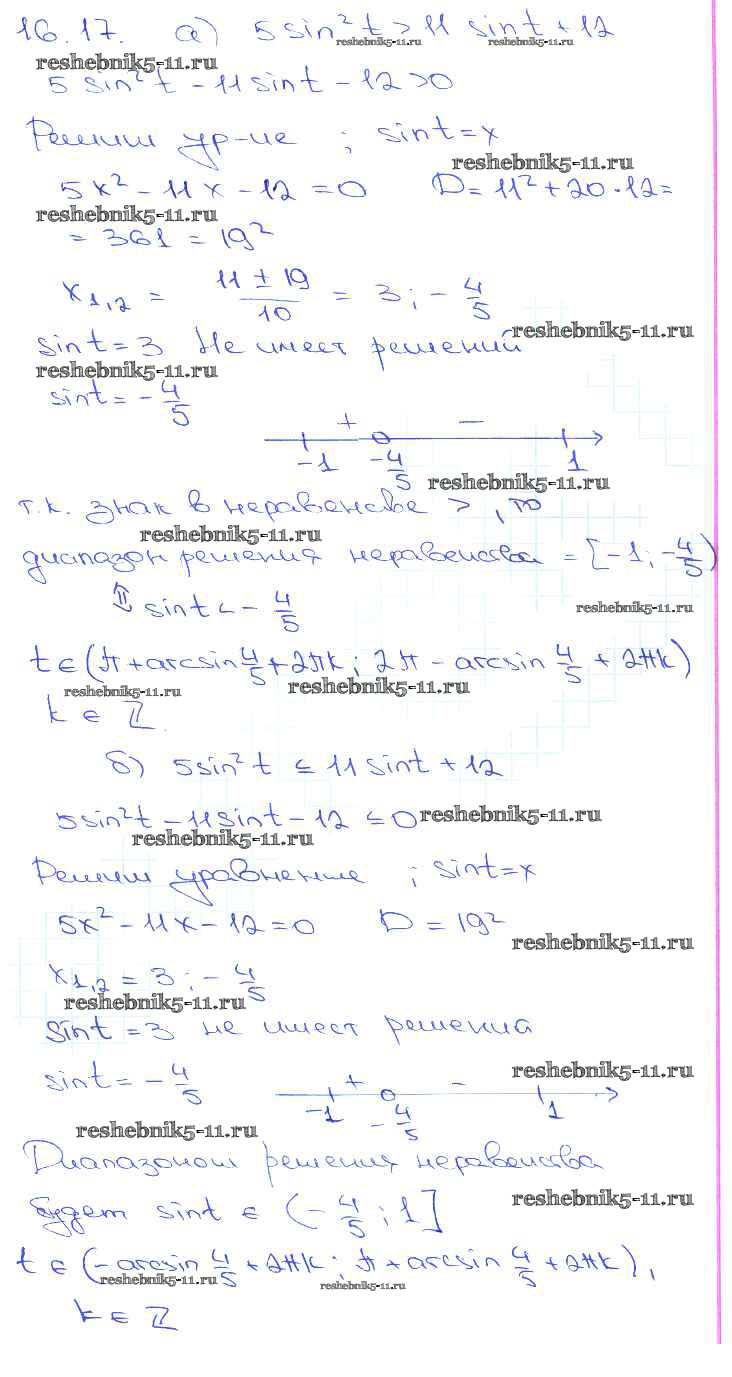 16.17. а) 5 sin² t > 11 sin t + 12
reshebnik5-11.ru reshebnik5-11.ru
reshebnik5-11.ru
5 sin² t - 11 sin t - 12 > 0
Решим ур-ие ; sin t = x
reshebnik5-11.ru
5x² - 11x - 12 = 0 D = 11² + 20 · 12 =
reshebnik5-11.ru
= 361 = 19²
x₁,₂ = (11 ± 19)/10 = 3 ; - 4/5
reshebnik5-11.ru
sin t = 3 Не имеет решений
reshebnik5-11.ru
sin t = - 4/5
+ −
-1 -4/5 1
reshebnik5-11.ru
т.к. знак в неравенстве > , то
reshebnik5-11.ru
диапазон решения неравенства = [-1 ; -4/5)
⇕ sin t < - 4/5
reshebnik5-11.ru
t ∈ (π + arcsin 4/5 + 2πk ; 2π - arcsin 4/5 + 2πk)
reshebnik5-11.ru reshebnik5-11.ru
k ∈ ℤ
б) 5 sin² t ≤ 11 sin t + 12
5 sin² t - 11 sin t - 12 ≤ 0 reshebnik5-11.ru
reshebnik5-11.ru
Решим уравнение ; sin t = x
5x² - 11x - 12 = 0 D = 19²
reshebnik5-11.ru
x₁,₂ = 3 ; - 4/5
reshebnik5-11.ru
sin t = 3 не имеет решения
sin t = - 4/5 reshebnik5-11.ru
+ −
-1 - 4/5 1
reshebnik5-11.ru
Диапазоном решения неравенства
будет sin t ∈ (- 4/5 ; 1]
reshebnik5-11.ru
t ∈ (- arcsin 4/5 + 2πk ; π + arcsin 4/5 + 2πk) ,
reshebnik5-11.ru reshebnik5-11.ru
k ∈ ℤ